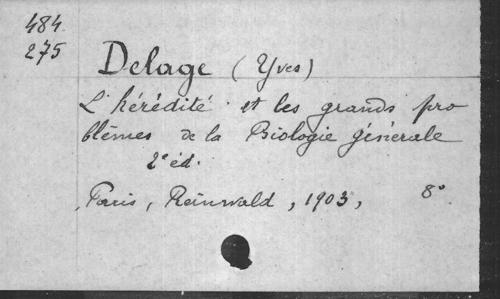 484
275
Delage (Yves)
L'hérédité et les grands pro
blèmes de la Biologie générale
2e éd.
Paris, Reinwald, 1903, 8°